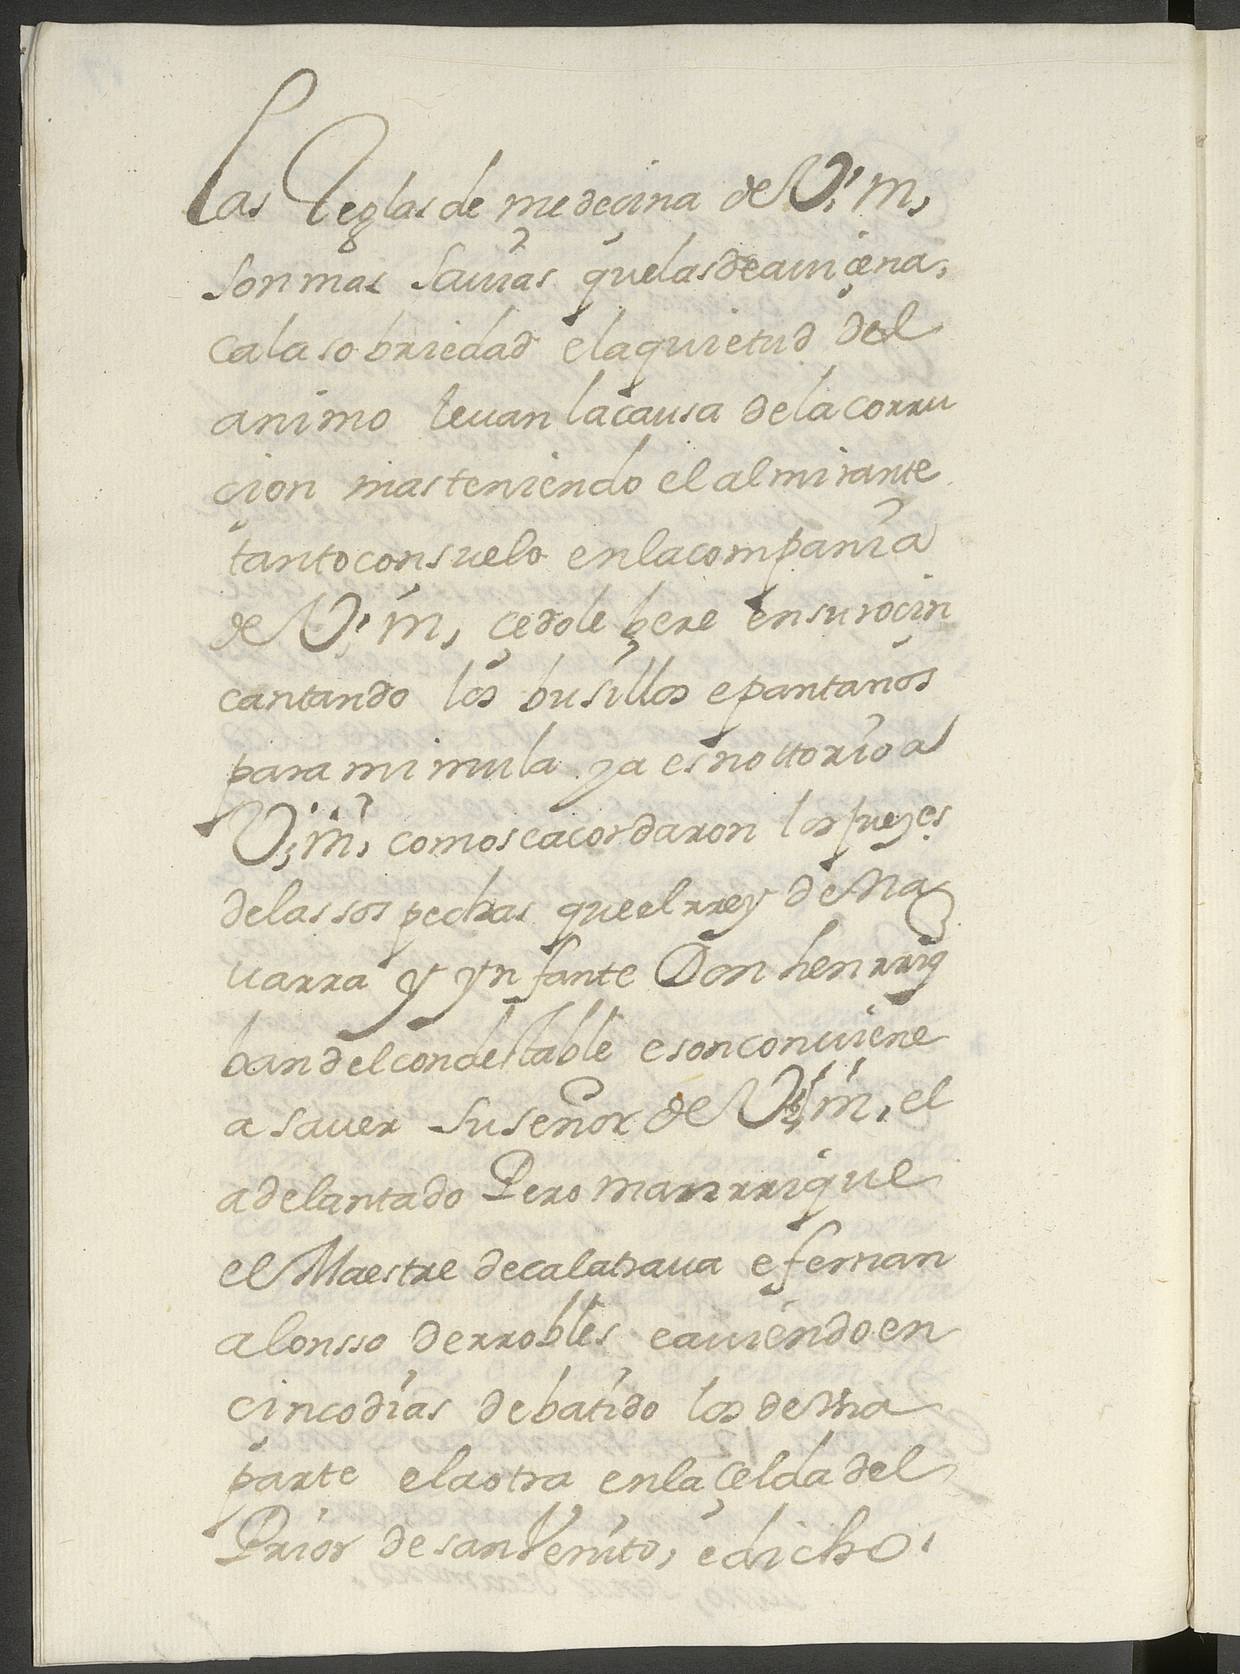 Las Reglas de medecina de V. m,
son mas sauias que las de auiçena,
ca la sobriedad e la quietud del
animo leuan la causa de la corru
çion mas teniendo el almirante
tanto consuelo en la compania
de V. m, çedole bere en su roçin
cantando los busillos e pantanos
para mi mula ya es nottorio a
V. m, como se acordaron los jueçes
de las sospechas que el rrey de Na
uarra y ynfante Don henrriq
han del condestable e son conviene
a sauer su señor de V. m, el
adelantado Pero manrrique
el Maestre de calatraua e fernan
alonsso de rrobles e auiendo en
cinco dias debatido los de vna
parte e la otra en la çelda del
Prior de san Venito, e dicho